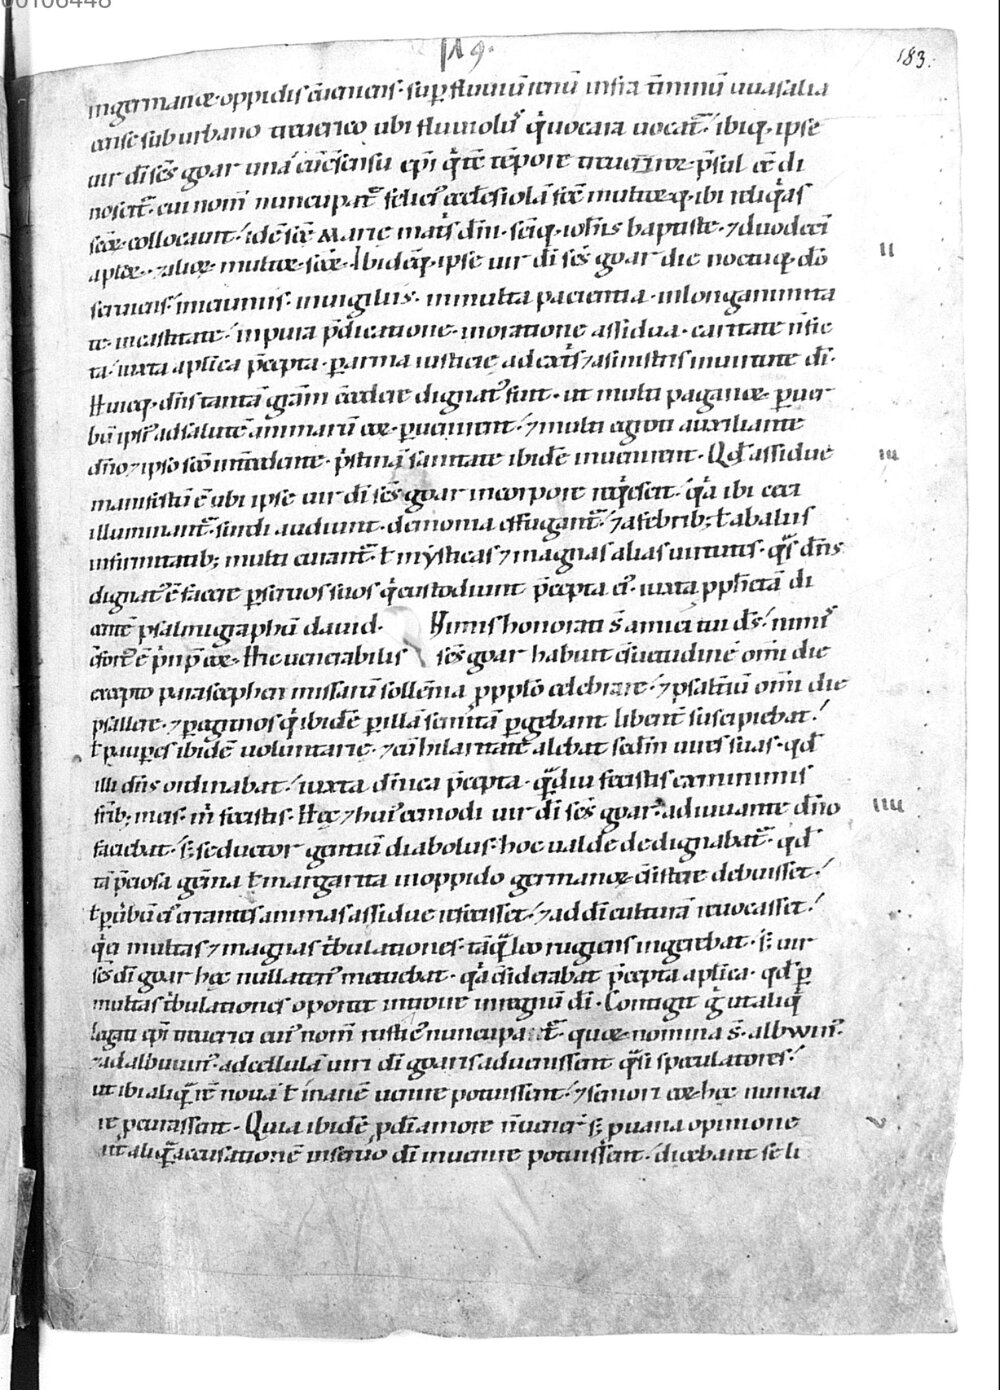 00106448
119.
183.
in germaniæ. oppidis ĉueniens. sup̱ fluuiũ renũ infra t̃minũ uuasalia
cense suburbano treuerico ubi fluuiolus̓ qͥ uocara uocat̃. ibiq, ipse
uir dĩ scs̃ goar una cũ c̃sensu ep̃i qͥ tc̃ tẽpore treuericæ p̃sul ẽe di
noscit̃. cui nom̃ nuncupat̃ felici᾽ ecclesiolã scẽ multæq, ibi reliqͥas
scæ collocauit. idẽ scẽ Marie mat͛s dñi. scĩq, ioh̃is baptiste. ⁊ duodecĩ
aplõꝝ. ⁊ aliæ multæ scæ. Ibidẽq, ipse uir dĩ scs̃ goar die noctuq, dõ
II
seruiens. in ieiuniis. in uigiliis. in multa pacientia. in longanimita
te. in castitate. in pura p̃dicatione. in oratione assidua. caritate nͣ fic
ta. iuxta aplĩca p̃cepta. ꝑ arma iusticie ad ext͛s ⁊ a sinistris in uirtute dĩ.
Huicq, dñs tantã grãm c̃cedere dignat᾽ fuit. ut multi paganoꝝ ꝑ uer
bũ ipsi᾽ ad salutẽ animarũ eoꝝ ꝑuenirent. ⁊ multi egroti auxiliante
dño ⁊ ipso scõ int̃cedente. p͛stinã sanitate ibidẽ inuenirent. Qđ assidue
III
manifestũ ẽ ubi ipse uir dĩ scs̃ goar in corpore req͛escit. qͥa ibi ceci
illuminant̃. surdi audiunt. demonia effugant̃. ⁊ a febrib; ł ab aliis
infirmitatib; multi curant̃. ł mysticas ⁊ magnas alias uirtutes. qͣs dñs
dignat᾽ ẽ facere ꝑ seruos suos qͥ custodiunt p̃cepta ei᾽. iuxta pp̃hetã di
centẽ psalmigraphũ dauid. Nimis honorati s̃ amici tui ds̃. nimis
c̃fort᾽ ẽ p͛ncipat᾽ eoꝝ. Hic uenerabilis scs̃ goar habuit c̃suetudinẽ om̃i die
excepto parascephen missarũ sollẽnia ꝓ pp̃lo celebrare. ⁊ psaltiũ om̃i die
psallere. ⁊ peregrinos qͥ ibidẽ ꝑ illã semitã ꝑgebant libent̃ suscipiebat.
ł pauperes ibidẽ uoluntarie. ⁊ cũ hilaritate alebat scdm̃ uires suas. qđ
illi dñs ordinabat. iuxta dñica p̃cepta. qͣdiu fecistis ex minimis
frĩb; meis. m͛ fecistis. Hęc ⁊ hui᾽cemodi uir dĩ scs̃ goar. adiuuante dño
IIII
faciebat. s; seductor gentiũ diabolus. hoc ualde dedignabat̃. qđ
tã p̃ciosa gẽma ł margarita in oppido germaniæ c̃sistere debuisset.
ł ꝑ ũbũ ei᾽ errantes animas assidue refecisset. ⁊ ad dĩ culturã reuocasset.
qͥ ei multas ⁊ magnas t͛bulationes. tãqͣ leo rugiens ingerebat. s; uir
scs̃ dĩ goar hęc nullaten᾽ metuebat. qͥa c̃siderabat p̃cepta aplĩca. qđ ꝑ
multas t͛bulationes oportet introire in regnũ dĩ. Contigit g͛ ut aliqͥ
legati ep̃i treuerici cui᾽ nom̃ rustic᾽ nuncupat̃. quoꝝ nomina s̃. albwin᾽.
⁊ adalbuuin᾽. ad cellulã uiri dĩ goaris aduenissent qͣsi speculatores.
ut ibi aliqͣ rẽ nouã ł inanẽ uenire potuissent. ⁊ seniori eoꝝ hęc nuncia
re ꝓcurassent. Quia ibidẽ ꝓ dĩ amore ñ uener̃. s; ꝓ uana opinione
V
ut aliqͣ accusationẽ in seruo dĩ inuenire potuissent. dicebant se li